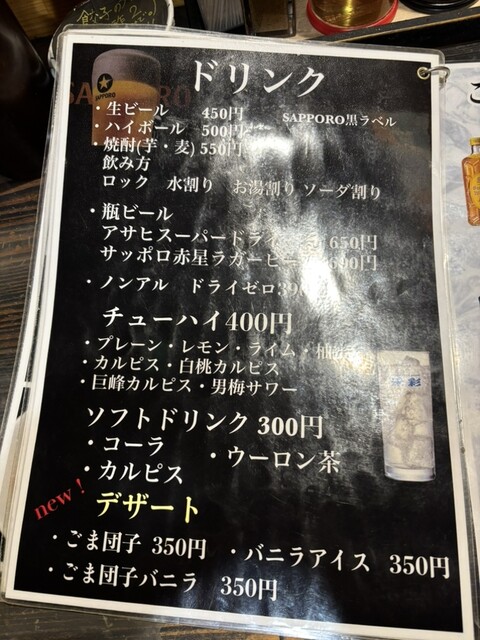 ドリンク
SAPPORO
・生ビール 450円 SAPPORO黒ラベル
・ハイボール 500円
・焼酎(芋・麦) 550円
飲み方
ロック 水割り お湯割り ソーダ割り
・瓶ビール
アサヒスーパードライ 650円
サッポロ赤星ラガービール
・ノンアル ドライゼロ
チューハイ400円
・プレーン・レモン・ライム・
・カルピス・白桃カルピス
・巨峰カルピス・男梅サワー
ソフトドリンク 300円
・コーラ ・ウーロン茶
・カルピス
new!
デザート
・ごま団子 350円 ・バニラアイス 350円
・ごま団子バニラ 350円